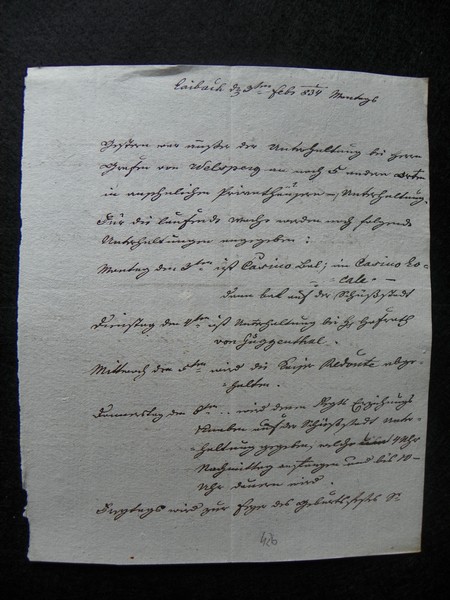 Laibach den 3ten Febr 834 Montags
Gestern war außer der Unterhaltung bei Herrn
Grafen von Welsperg an noch 5 andern Orten
in ansehnlichen Privathäusern Unterhaltung.
Für die laufende Woche werden noch folgende
Unterhaltungen angegeben:
Montag den 3ten ist Casino Bal; im Casino Lo-
cale —
dann bal auf der Schießstadt
Dienstag den 4ten ist Unterhaltung bei H. Hofrath
von Huggenthal.
Mittwoch den 5ten wird die Redoute abge-
halten.
Donnerstag den 6ten wird denen Regts Erziehungs
Knaben auf der Schießstadt Unter-
haltung gegeben, welche 4 Uhr
Nachmittag anfangen und bis 10-
Uhr dauern wird.
Freytags wird zur Feyer des Geburtsfestes Sr
426